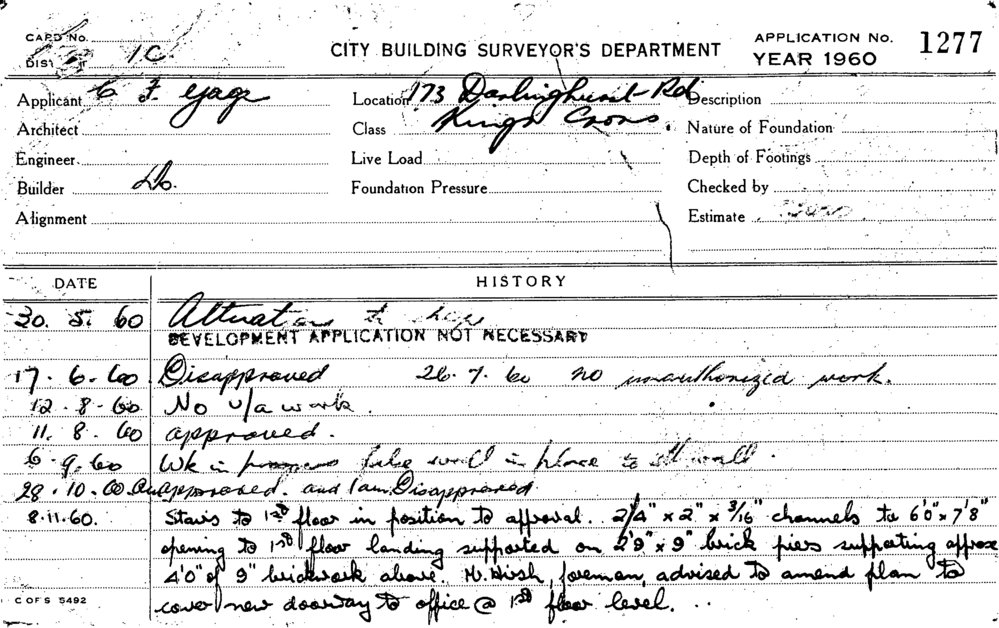 CARD No.
DIST 1C.
CITY BUILDING SURVEYOR'S DEPARTMENT
APPLICATION No. 1277
YEAR 1960
Applicant C F Gage
Location 173 Darlinghurst Rd
Description
Architect
Class Kings Cross.
Nature of Foundation
Engineer
Live Load
Depth of Footings
Builder Do.
Foundation Pressure
Checked by
Alignment
Estimate
DATE HISTORY
30. 5. 60 Alterations to shop
DEVELOPMENT APPLICATION NOT NECESSARY
17. 6. 60 Disapproved 26. 7. 60 no unauthorized work.
12. 8. 60 No u/a work.
11. 8. 60 approved.
6. 9. 60 Wk in progress false wall in place to wall.
28. 10. 60 approved. and 1 am. Disapproved
8. 11. 60. Stairs to 1st floor in position to approval. 2/4" x 2" x 3/16" channels to 6'0" x 7'8"
opening to 1st floor landing supported on 2'9" x 9" brick piers supporting approx
4'0" of 9" brickwork above. Mr. Hirsh, foreman, advised to amend plan to
cover new doorway to office @ 1st floor level.
C OF S 5492